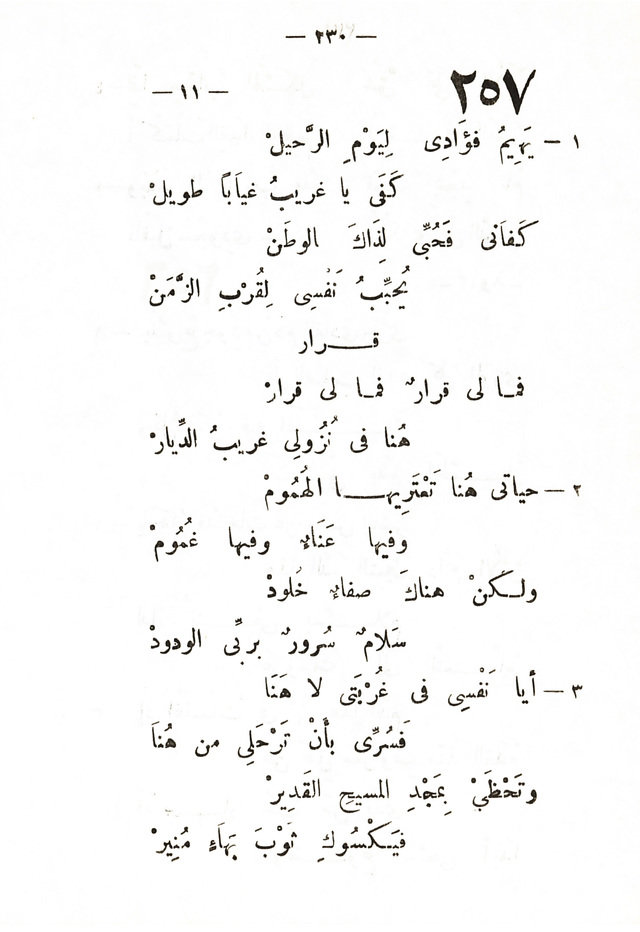 — ٢٣٠ —
٢٥٧ — ١١ —
١ — يَهِيمُ فؤَادِى لِيَوْمِ الرَّحيلْ
كَفَى يا غريبُ غياَباً طويلْ
كَفاَنى فَحُبِّى لِذَاكَ الوطَنْ
يُحبِّبُ نَفْسِى لِقُرْبِ الزَّمَنْ
قـــرار
فمـا لى قرارٌ فمـا لى قرارْ
هُنا فى نُزُولِى غريبُ الدِّيارْ
٢ — حياتى هُنا تَعْتَرِيهـــا الهُمُومْ
وفيها عَنَاءٍ وفيها غُمُومْ
ولـكنْ هناكَ صفاءٍ خُلودْ
سَلامٌ سُرورٌ بربِّى الودودْ
٣ — أيا نَفْسِى فى غُرْبَتى لا هَنَا
فَسُرِّى بأَنْ تَرْحَلِى من هُنَا
وتَحْظَيْ بِمَجْدِ المسيحِ القَدِيرْ
فيَـكْسُوكِ ثَوْبَ بَهاَءٍ مُنِيرْ